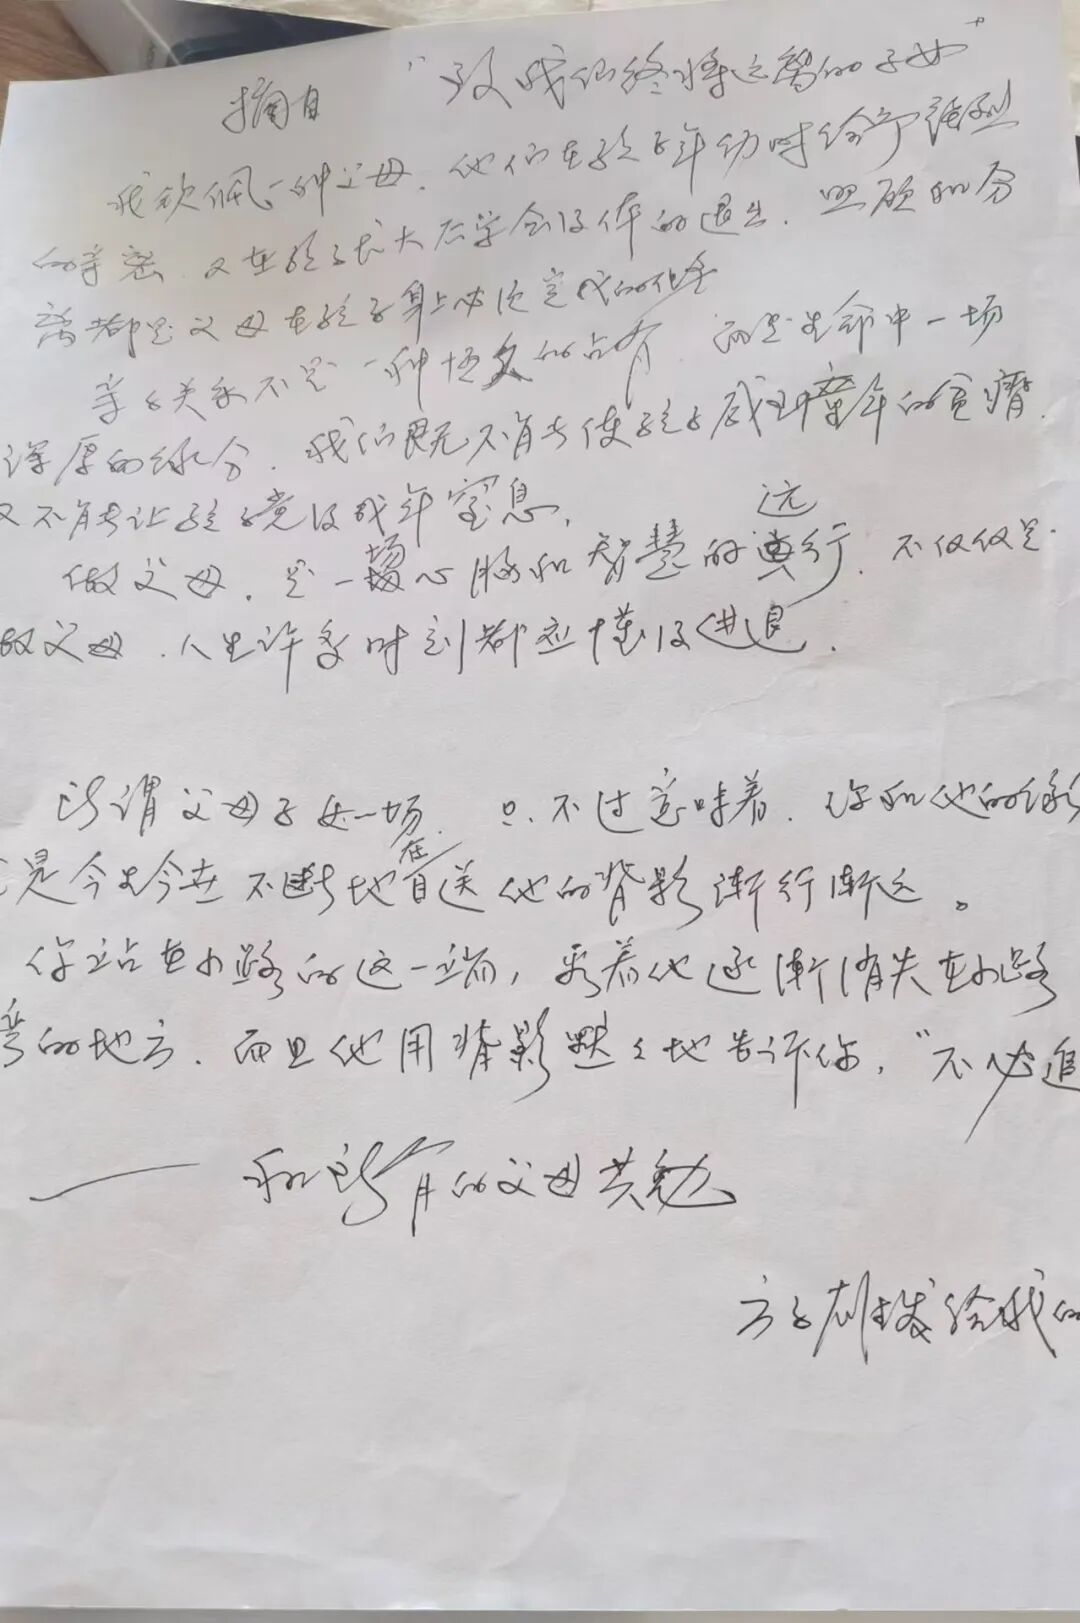 摘自 “致我们终将远离的子女”
我钦佩一种父母，他们在孩子年幼时给予强烈
的亲密，又在孩子长大后学会得体的退出，照顾和分
离都是父母在孩子身上必须完成的任务
亲子关系不是一种恒久的占有，而是生命中一场
深厚的缘分，我们既不能使孩子感到童年的贫瘠，
又不能让孩子觉得成年窒息，
做父母，是一场心胸和智慧的远行，不仅仅是
做父母，人生许多时刻都应懂得进退，
所谓父母子女一场，只不过意味着，你和他的缘
是今生今世不断地在目送他的背影渐行渐远。
你站在小路的这一端，看着他逐渐消失在小路
弯的地方，而且他用背影默默地告诉你，“不必追
—— 和所有的父母共勉
给我的